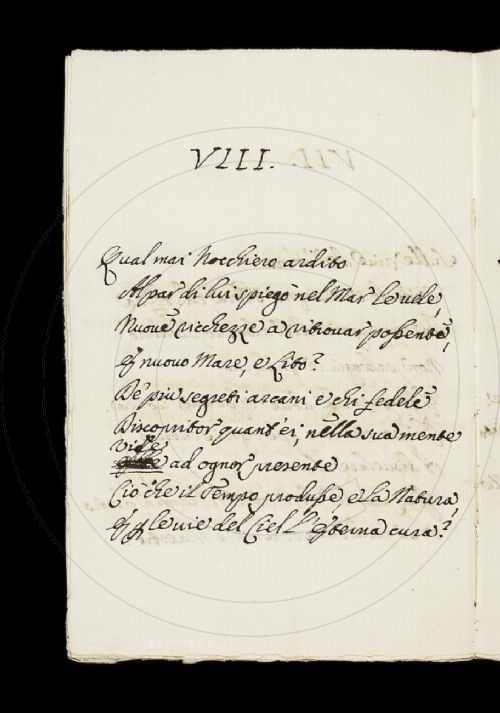 VIII.
Qual mai Nocchiero ardito
Al par di lui spiegò nel Mar le vele,
Nuove ricchezze a ritrovar possente,
E nuovo Mare, e Lito?
De più segreti arcani e chi fedele
Discopritor quant' ei, nella sua mente
Vide
ad ognor presente
Ciò che il Tempo produsse e la Natura,
E le vie del Ciel l' Eterna cura?